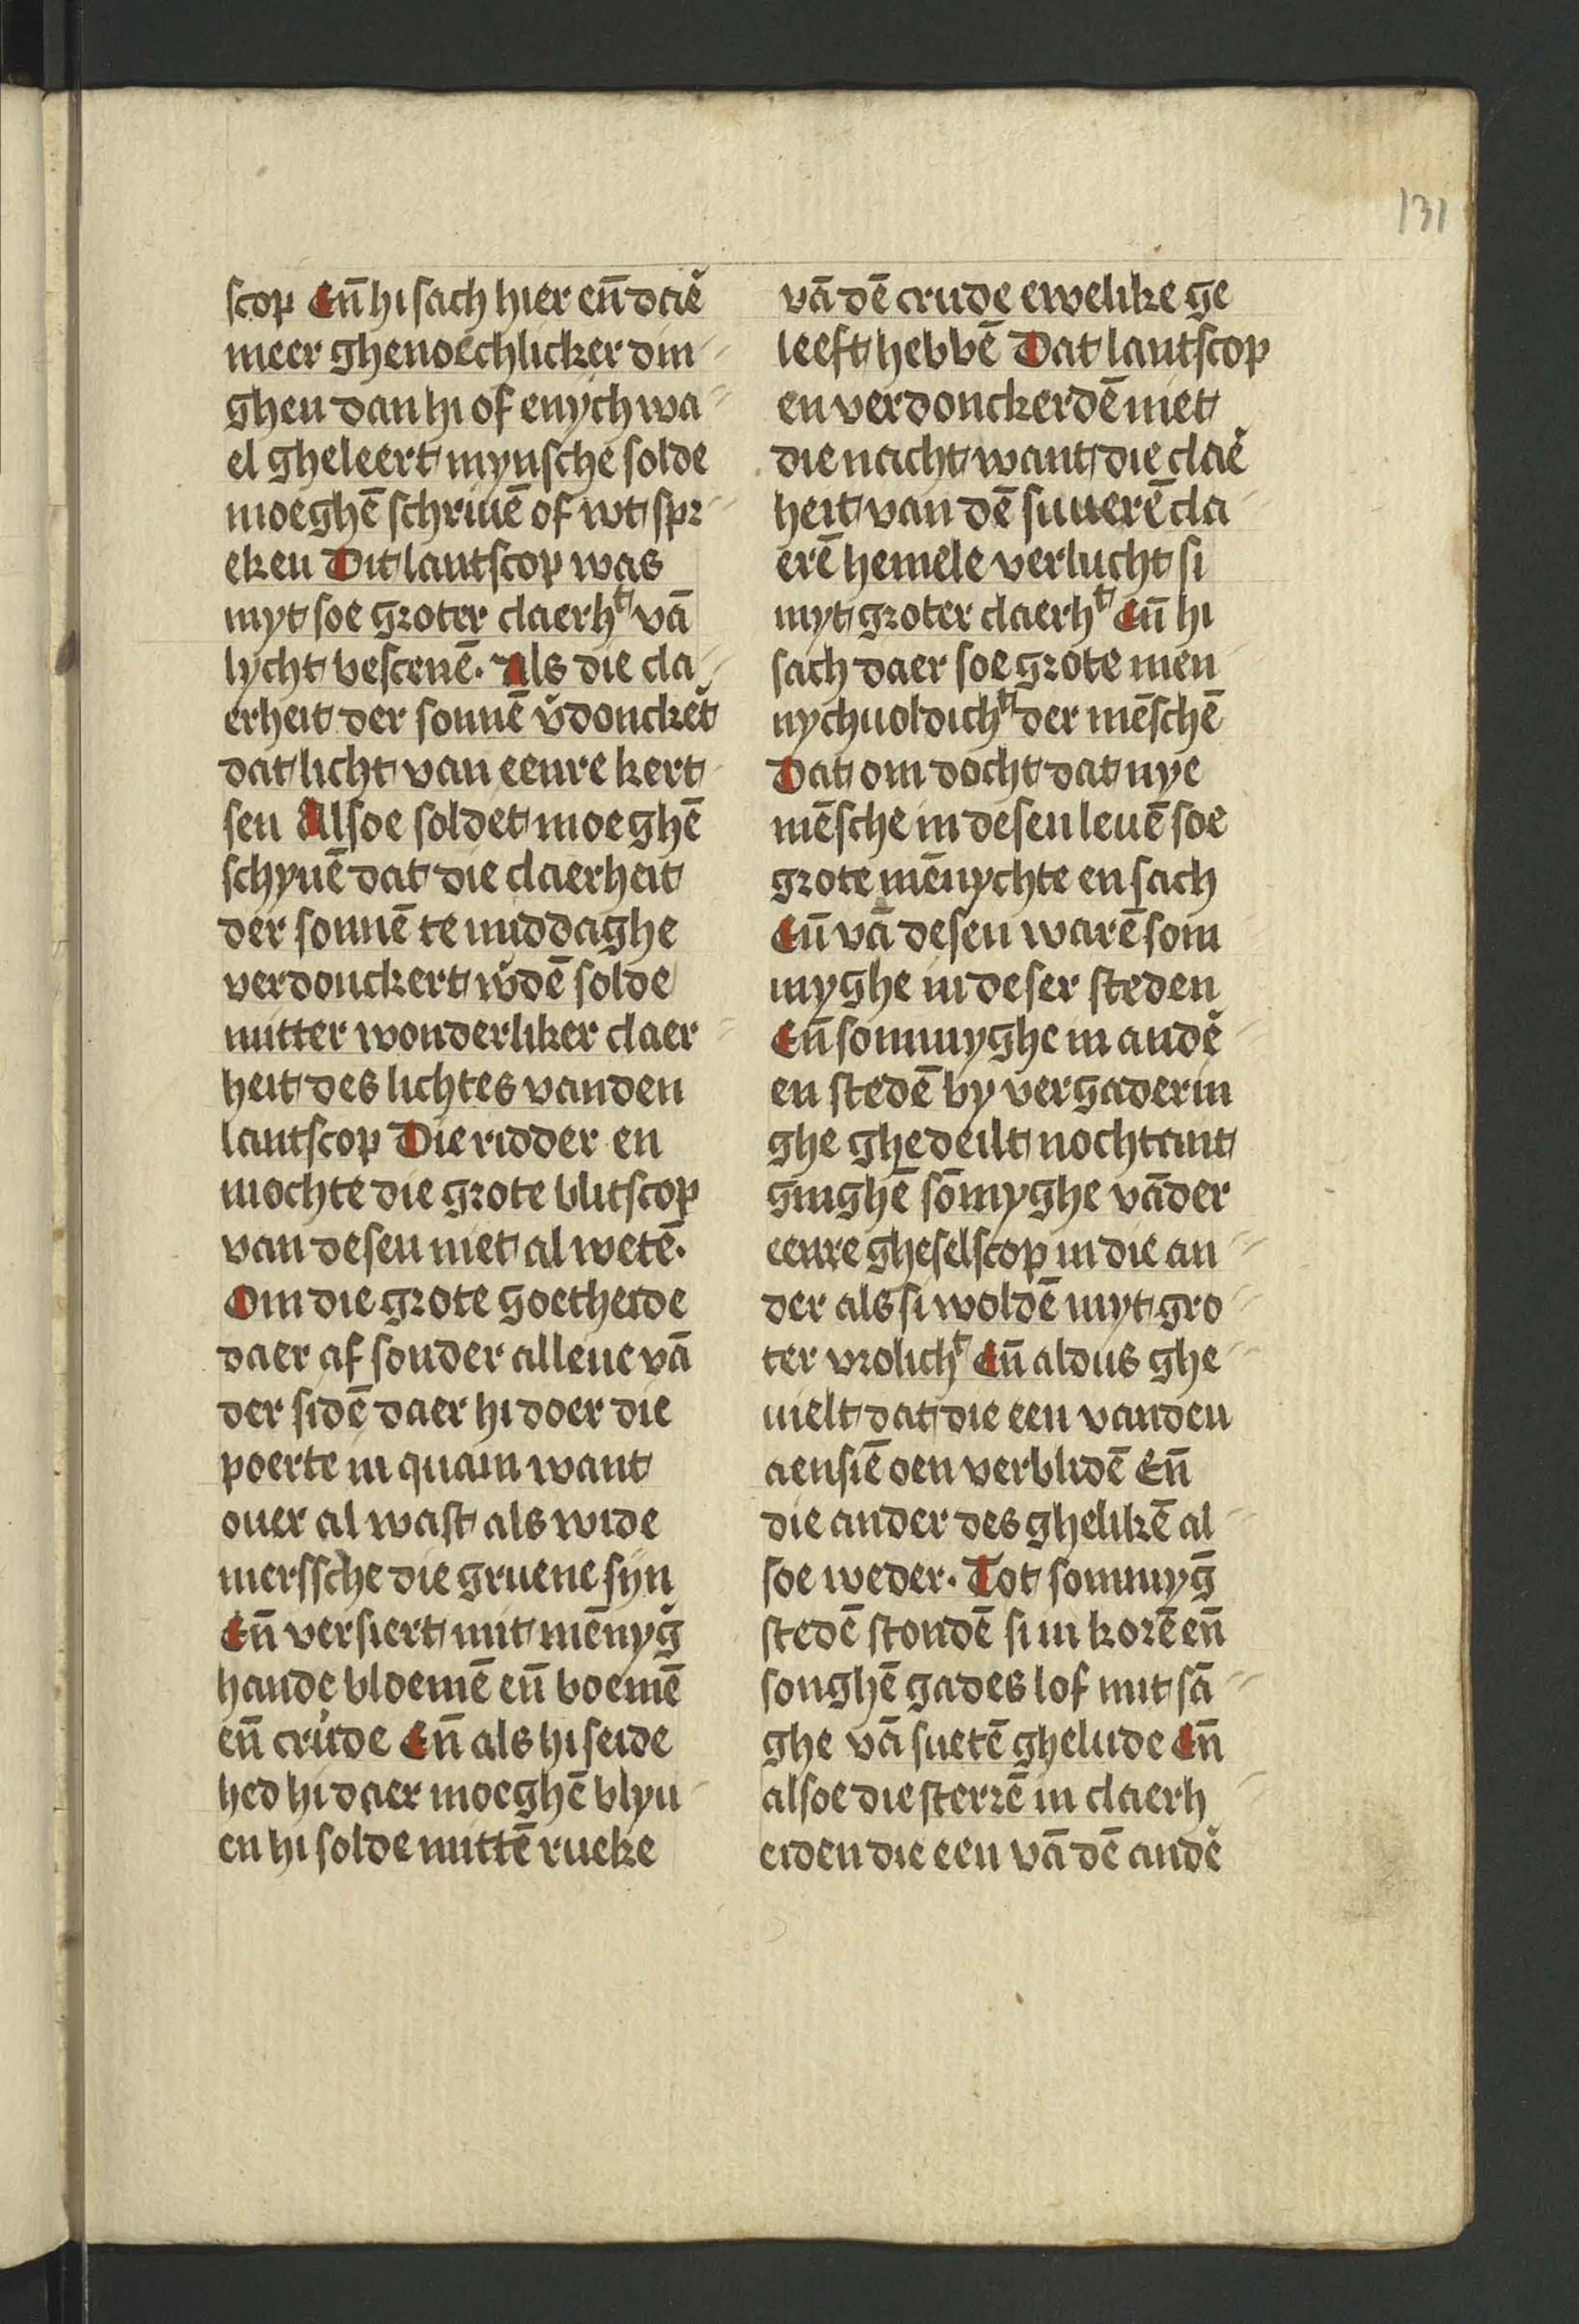 131
scop Eñ hi sach hier eñ daeř
meer ghenoechlicker din
ghen dan hi of enych wa
el gheleert mynsche solde
moeghē schriuē of wt spr
eken Dit lantscop was
myt soe groter claerhᵗ vā
lycht bescenē. Als die cla
erheit der sonnē v̆donckĕt
dat licht van eenre kert
sen Alsoe soldet moeghē
schynē dat die claerheit
der sonnē te middaghe
verdonckert w̆dē solde
mitter wonderliker claer
heit des lichtes vanden
lantscop Die ridder en
mochte die grote blitscop
van desen niet al wetē.
Om die grote goetheide
daer af sonder allene vā
der sidē daer hi doer die
poerte in quam want
ouer al wast als wide
merssche die gruene sijn
Eñ versiert mit mēnyg̃
hande bloemē eñ boemē
eñ crude Eñ als hi seide
hed hi daer moeghē blyu
en hi solde mittē rueke
vā dē crude ewelike ge
leeft hebbē Dat lantscop
en verdonckerdē niet
die nacht want die claĕ
heit van dē suuerē cla
erē hemele verlucht si
myt groter claerhᵗ Eñ hi
sach daer soe grote men
nychuoldichᵗ der mēschē
Dat om docht dat nye
mēsche in desen leuē soe
grote mēnychte en sach
Eñ vā desen warē som
myghe in deser steden
Eñ sommyghe in andĕ
en stedē by vergaderin
ghe ghedeilt nochtant
ginghē sōmyghe vāder
eenre gheselscop in die an
der als si woldē myt gro
ter vrolichᵗ Eñ aldus ghe
uielt dat die een vanden
aensiē oen verblidē Eñ
die ander des ghelikē al
soe weder. Tot sommyg̃
stedē stondē si in korē eñ
songhē gades lof mit sā
ghe vā suetē ghelude Eñ
alsoe die sterrē in claerh
eiden die een vā dē andĕ